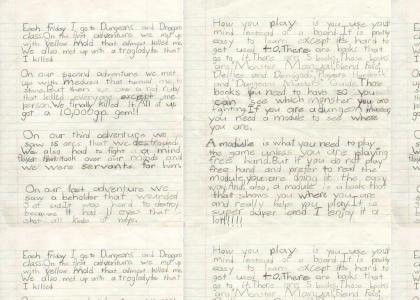 Each friday I go to Dungeons and Dragons
class. On the first adventure we met up
with yellow mold that almost killed me.
We also met up with a troglodyte that
I killed
On our second adventure we met
up with Medusa that turned me to
stone. But then we saw a red
that killed everyone except one
person. We finally killed it. All of us
got a 10,000gp gem!!
On our third adventure we
saw 15 orcs that we destroyed.
We also had to fight a mind
flayer that took over our minds and
we were servants for him
On our last adventure we
saw a beholder that wounded
3 of us. It was hard to destroy
because it had 11 eyes that
shot all kinds of rays.
How you play is you use your
mind instead of a board. It is pretty
easy to learn except it's hard to
get used to. There are books that
go to it. There are 5 books. Those books
are Monster Manual, Fiend Folio,
Deities and Demigods, Players Handbook
and Dungeon Masters Guide. Those
books you need to have so you
can see which monster you are
fighting. If you are a dungeon master
you need a module to see where
you are.
A module is what you need to play
the game unless you are playing
free hand. But if you do not play
free hand and prefer to read the
module, you are doing it the easy
way. And also, a module is a book that
that shows you where you are
and really helps you play. It is
super duper and I enjoy it a
lot!!!!!
Each friday I go to Dungeons and Dragons
class. On the first adventure we met up
with yellow mold that almost killed me.
We also met up with a troglodyte that
I killed
On our second adventure we met
How you play is you use your
mind instead of a board. It is pretty
easy to learn except it's hard to
get used to. There are books that
go to it. There are 5 books. Those books
are Monster Manual, Fiend Folio,